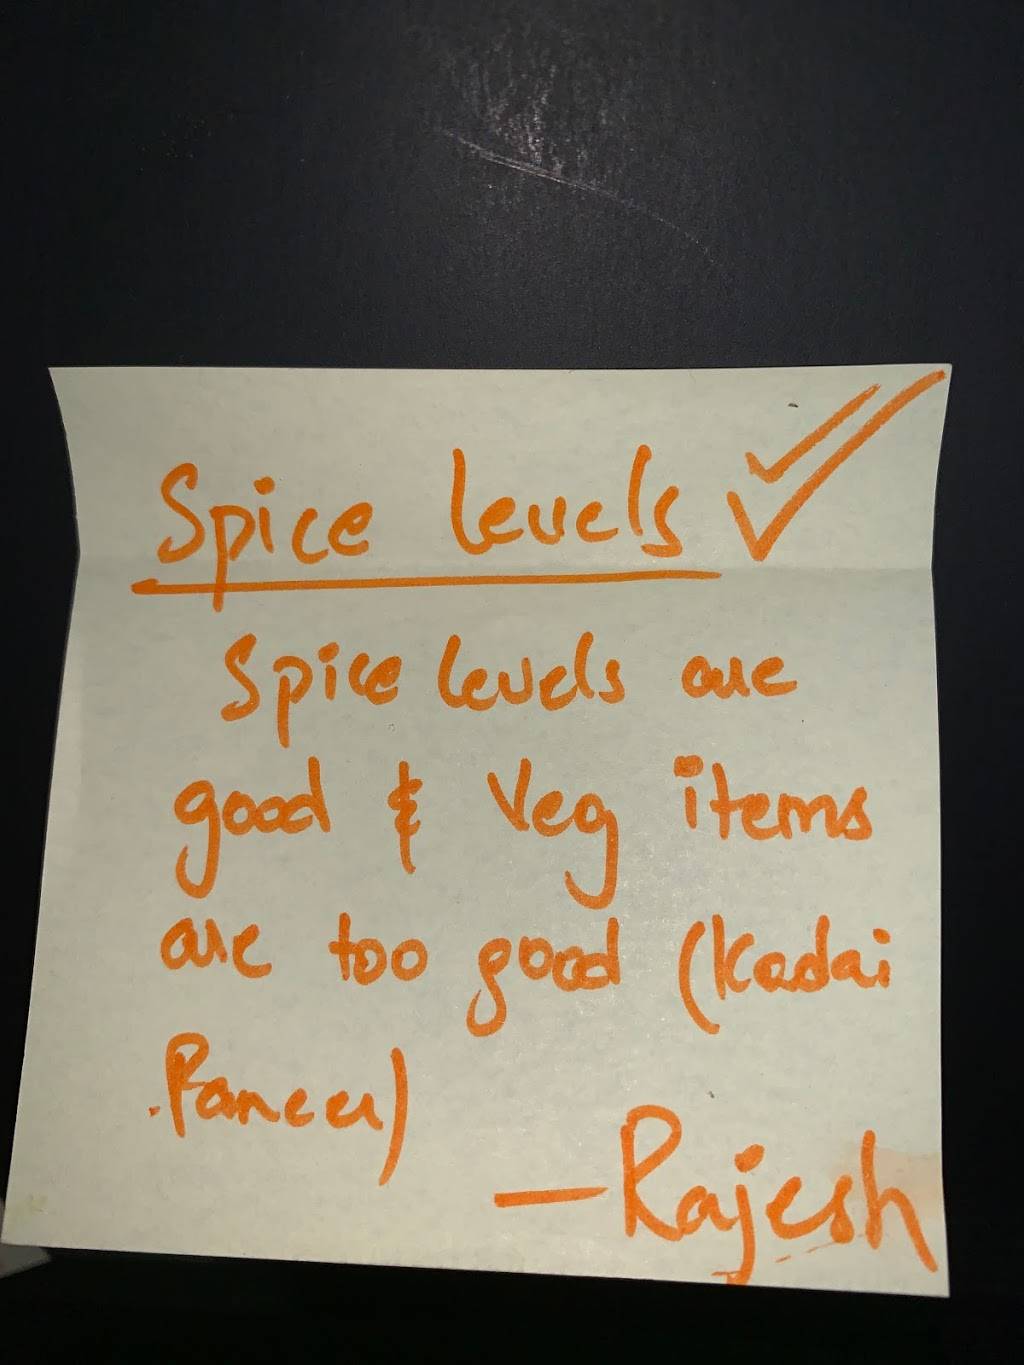 Spice levels
Spice levels are
good & Veg items
are too good (Kadai
Paneer)
—Rajesh